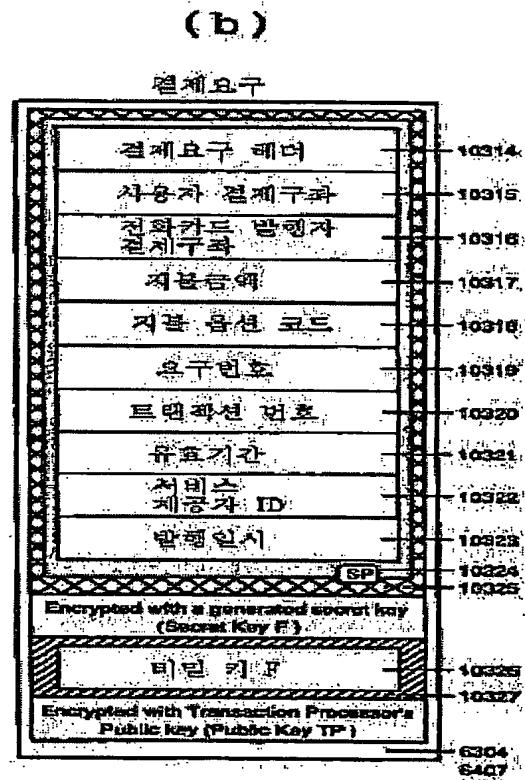 (b)
결제요구
결제요구 헤더
10314
사용자 결제구좌
10315
전화카드 발행자
결제구좌
10316
지불금액
10317
지불 옵션 코드
10318
요구번호
10319
트랜잭션 번호
10320
유효기간
10321
서비스
제공자 ID
10322
발행일시
10323
SP
10324
10325
Encrypted with a generated secret key
(Secret Key F)
비밀 키 F
10326
10327
Encrypted with Transaction Processor's
Public key (Public Key TP)
6304
6407